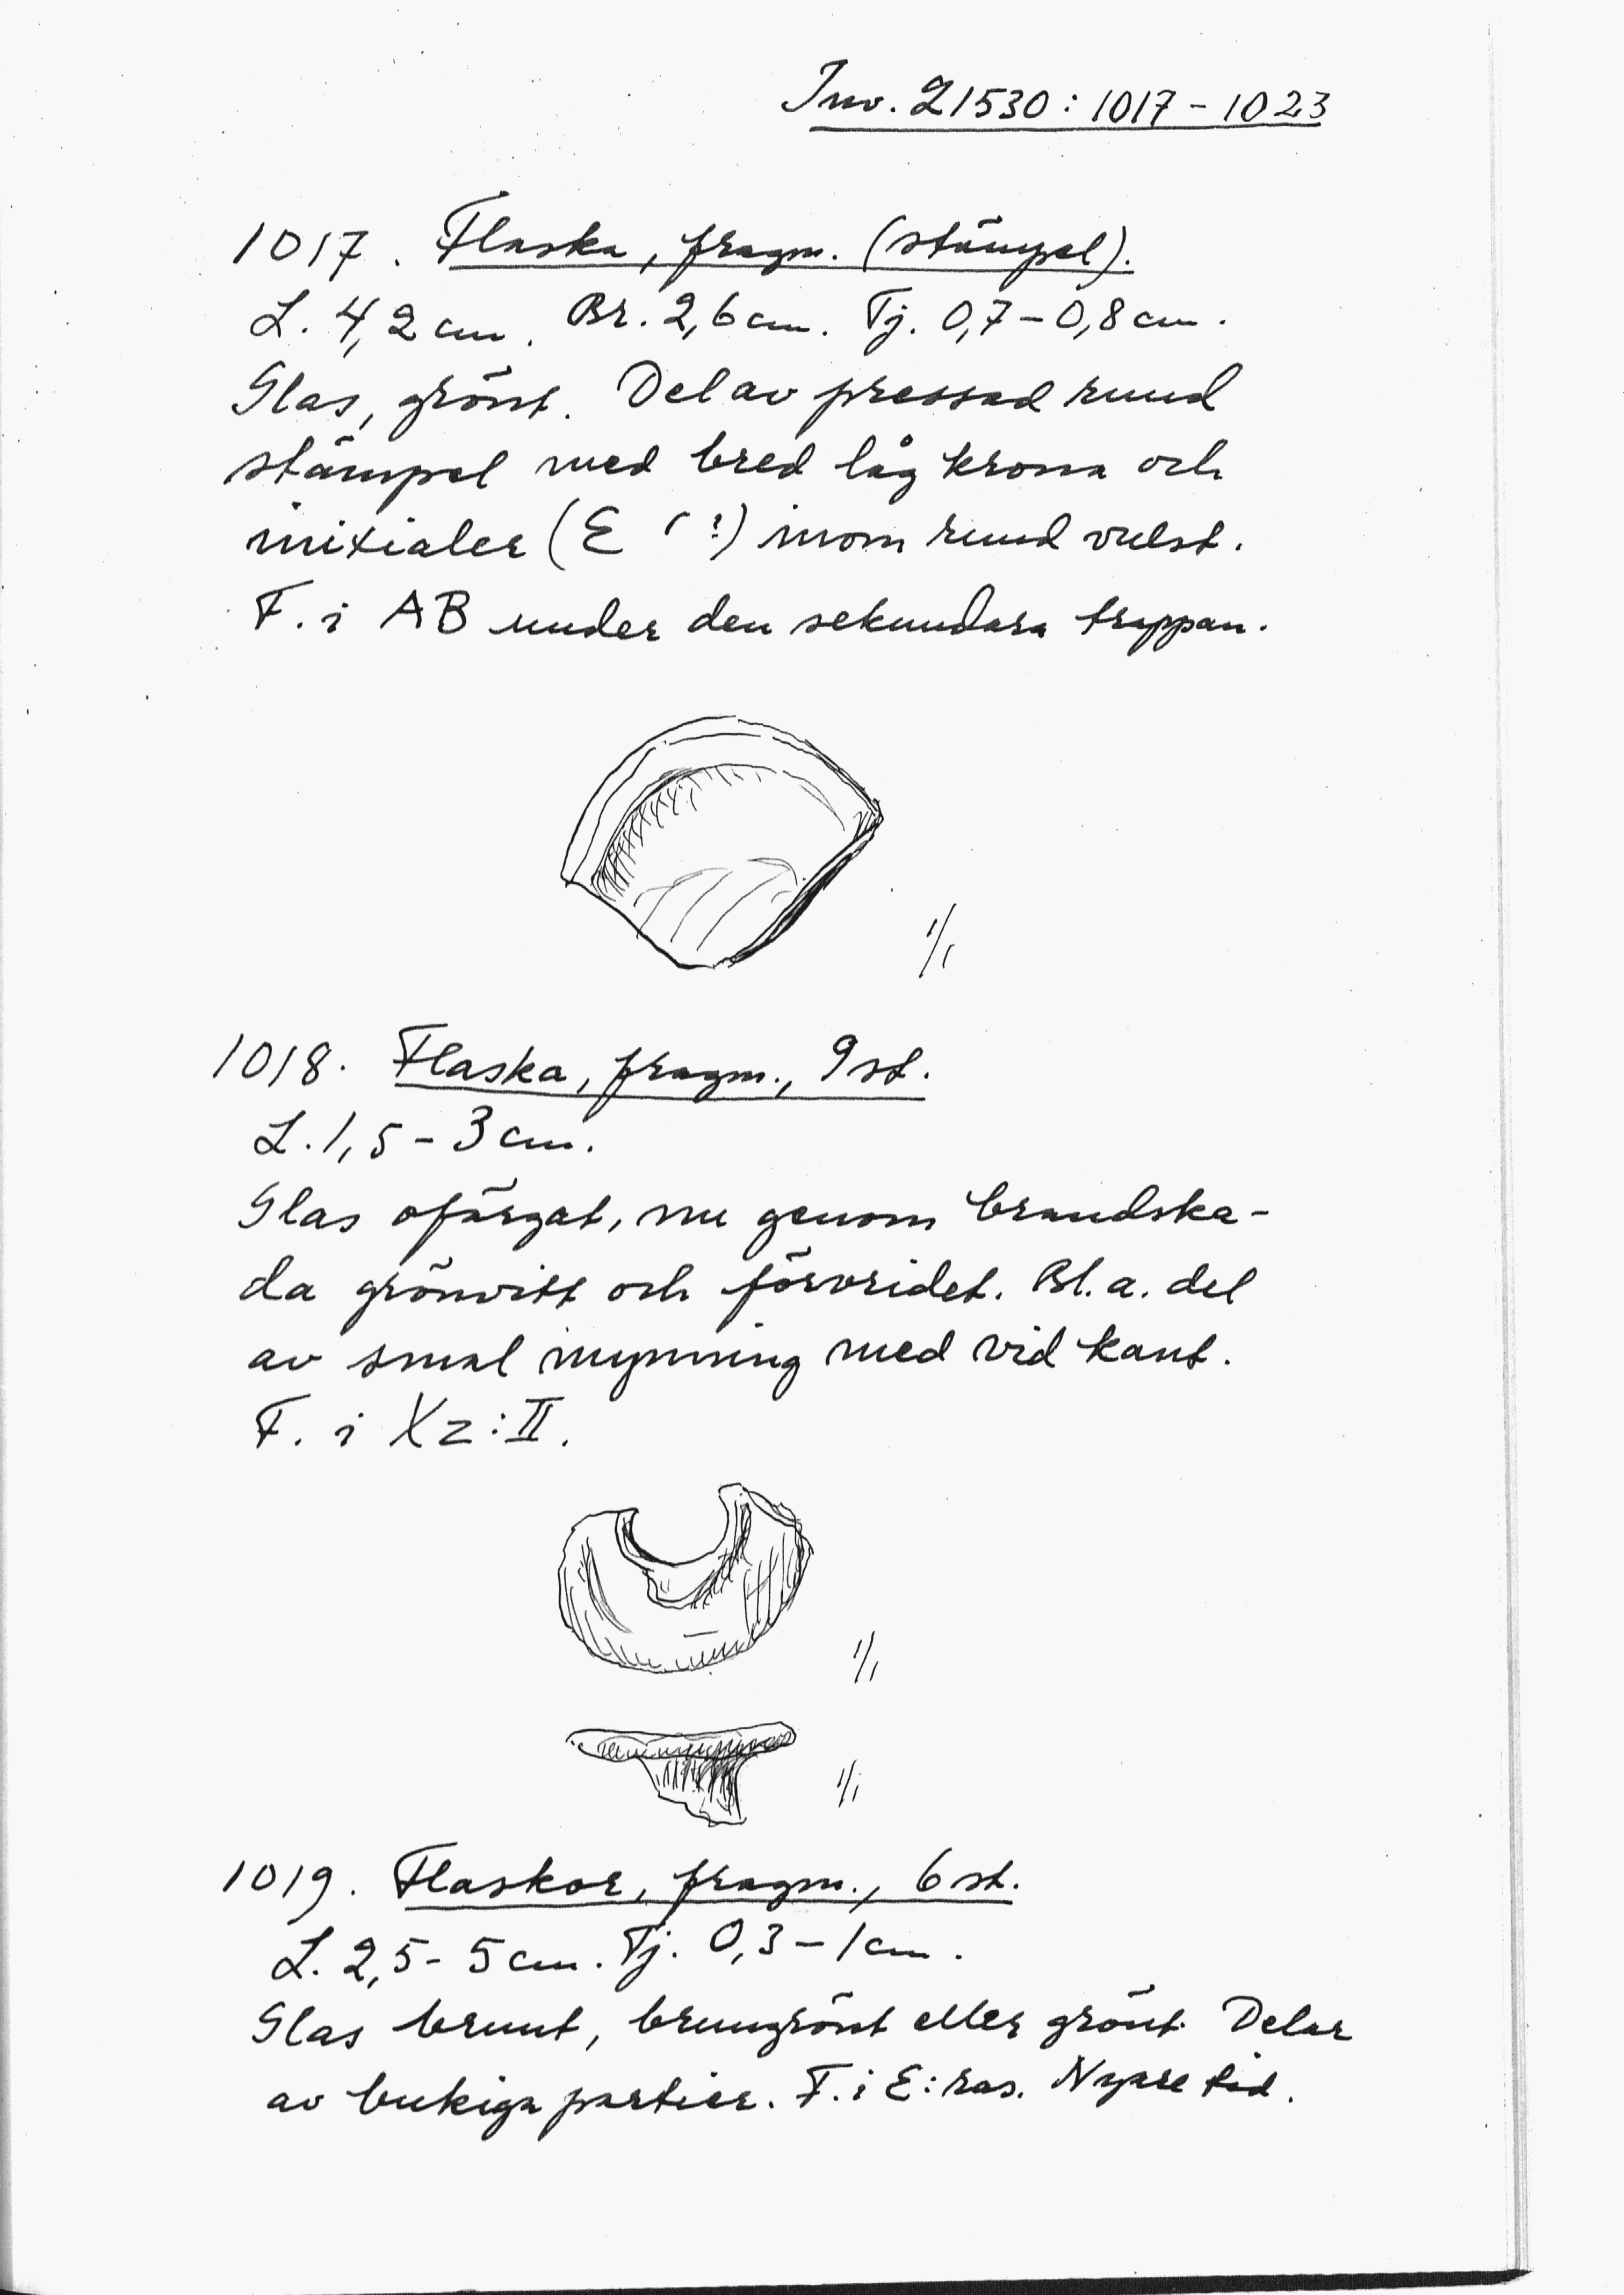 Inv. 21530:1017-1023
1017. Flaska, fragm. (stämpel).
L. 4,2 cm. Br. 2,6 cm. Tj. 0,7-0,8 cm.
Glas, grönt. Del av pressad rund
stämpel med bred låg krona och
initialer (E ?) inom rund vulst.
F. i AB under den sekundära trappan.
1/1
1018. Flaska, fragm., 9 st.
L. 1,5-3 cm.
Glas ofärgat, nu genom brandska-
da grönvitt och förvridet. Bl.a. del
av smal mynning med vid kant.
F. i Xz:II.
1/1
1/1
1019. Flaskor, fragm., 6 st.
L. 2,5-5 cm. Tj. 0,3-1 cm.
Glas brunt, brungrönt eller grönt. Delar
av bukiga partier. F. i E:ras. Nyare tid.